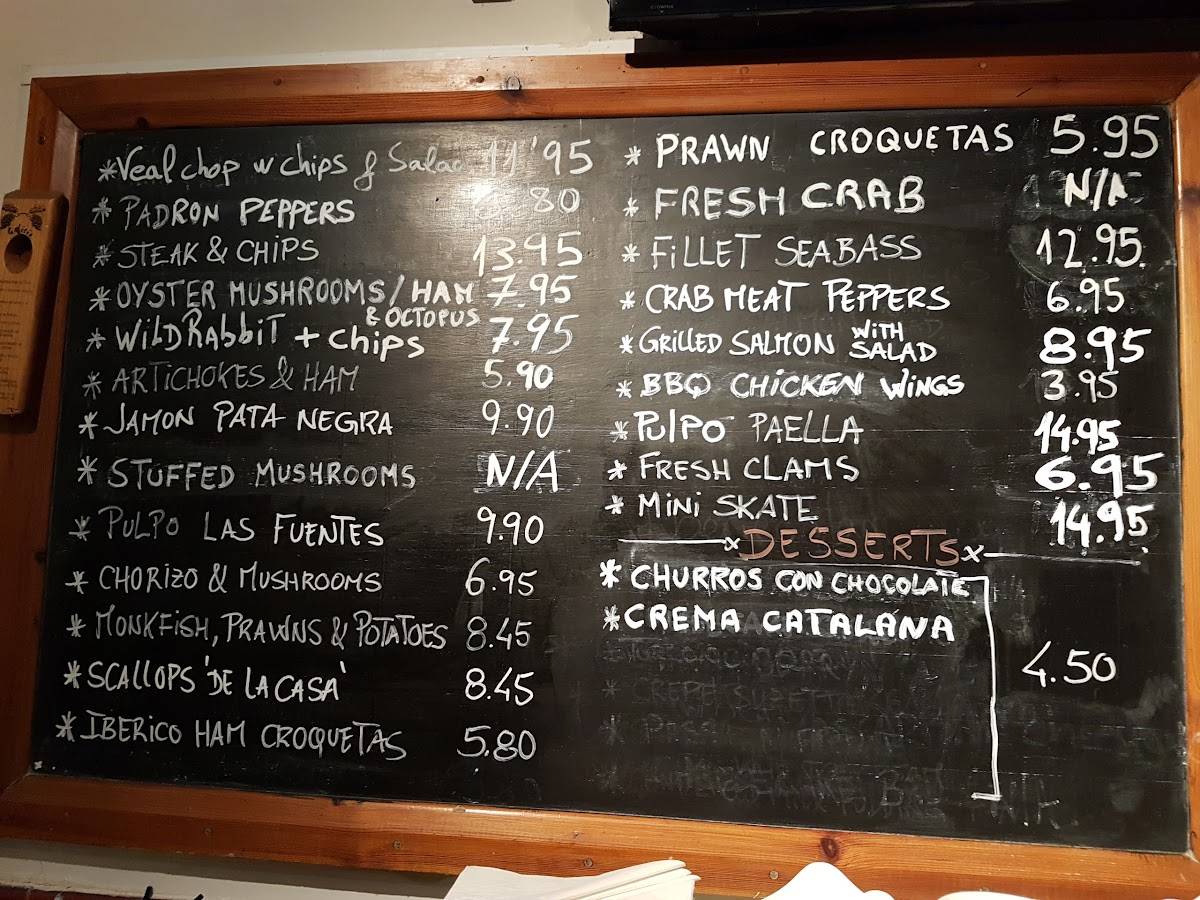 *Veal chop w chips & Salad 11'95
*PADRON PEPPERS 80
*STEAK & CHIPS 13.95
*OYSTER MUSHROOMS/HAM 7.95
& OCTOPUS
*WILD RABBIT + CHIPS 7.95
*ARTICHOKES & HAM 5.90
*JAMON PATA NEGRA 9.90
*STUFFED MUSHROOMS N/A
*PULPO LAS FUENTES 9.90
*CHORIZO & MUSHROOMS 6.95
*MONKFISH, PRAWNS & POTATOES 8.45
*SCALLOPS 'DE LA CASA' 8.45
*IBERICO HAM CROQUETAS 5.80
*PRAWN CROQUETAS 5.95
*FRESH CRAB N/A
*FILLET SEABASS 12.95
*CRAB MEAT PEPPERS 6.95
*GRILLED SALMON WITH SALAD 8.95
*BBQ CHICKEN WINGS 3.95
*PULPO PAELLA 14.95
*FRESH CLAMS 6.95
*MINI SKATE 14.95
xDESSERTSx
*CHURROS CON CHOCOLATE
*CREMA CATALANA
4.50